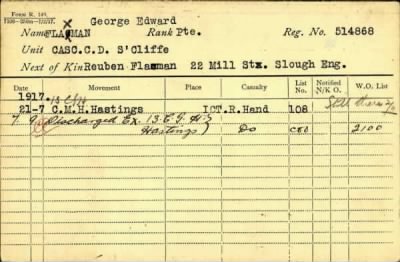 Form R. 149.
x George Edward
Name FLAXMAN Rank Pte. Reg. No. 514868
Unit CASC.C.D. S'Cliffe
Next of Kin Reuben Flaxman 22 Mill Stx. Slough Eng.
Date Movement Place Casualty List No. Notified N/K O. W.O. List
1917
21-7 C.M.H.Hastings ICT.R.Hand 108 Still there
7 9 Discharged Ex. 13.C.G.H.
Hastings) Do 2100